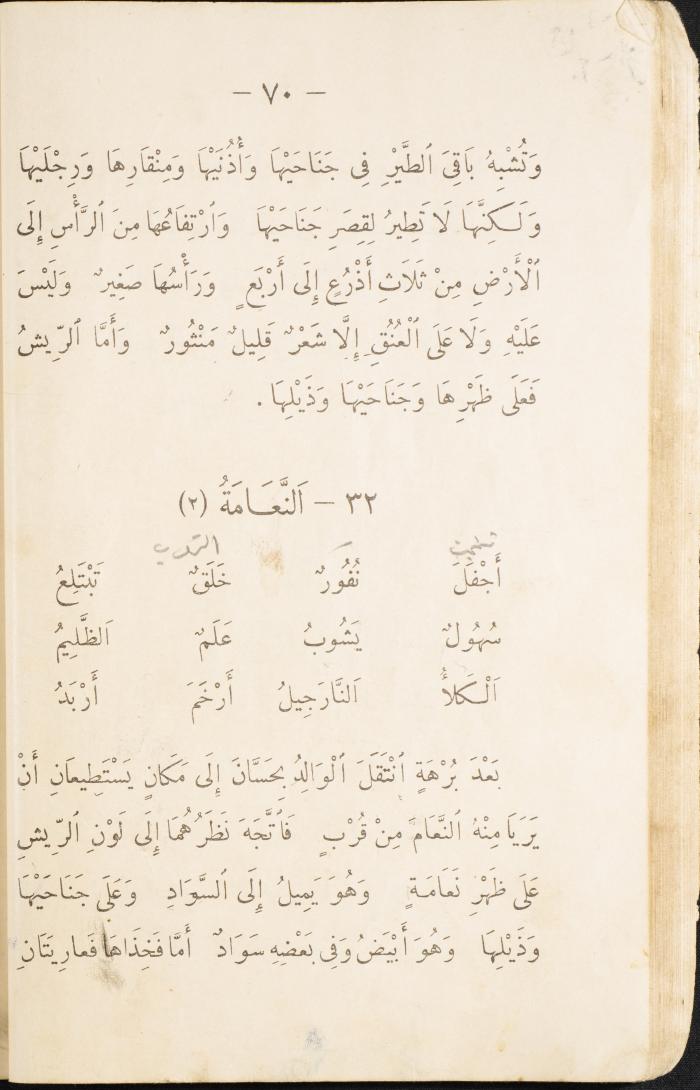 – ٧٠ –
وَتُشْبِهُ بَاقِىَ ٱلطَّيْرِ فِى جَنَاحَيْهَا وَأُذُنَيْهَا وَمِنْقَارِهَا وَرِجْلَيْهَا
وَلَـكِنَّهَا لَا تَطِيرُ لِقِصَرِ جَنَاحَيْهَا وَٱرْتِفَاعُهَا مِنَ ٱلرَّأْسِ إِلَى
ٱلْأَرْضِ مِنْ ثَلَاثِ أَذْرُعٍ إِلَى أَرْبَعٍ وَرَأْسُهَا صَغِيرٌ وَلَيْسَ
عَلَيْهِ وَلَا عَلَى ٱلْعُنُقِ إِلَّا شَعْرٌ قَلِيلٌ مَنْثُورٌ وَأَمَّا ٱلرِّيشُ
فَعَلَى ظَهْرِهَا وَجَنَاحَيْهَا وَذَيْلِهَا .
٣٢ – اَلنَّعَـامَةُ (٢)
أَجْفَلَ نُفُورٌ خَلَقٌ تَبْتَلِعُ
سُهُولٌ يَشُوبُ عَلَمٌ اَلظَّلِيمُ
اَلْـكَلأُ اَلنَّارَجِيلُ أَرْخَمَ أَرْبَدُ
بَعْدَ بُرْهَةٍ ٱنْتَقَلَ ٱلْوَالِدُ بِحَسَّانَ إِلَى مَكَانٍ يَسْتَطِيعَانِ أَنْ
يَرَيَا مِنْهُ ٱلنَّعَامَ مِنْ قُرْبٍ فَٱتَّجَهَ نَظَرُهُمَا إِلَى لَوْنِ ٱلرِّيشِ
عَلَى ظَهْرِ نَعَامَـةٍ وَهُوَ يَمِيلُ إِلَى ٱلسَّوَادِ وَعَلَى جَنَاحَيْهَا
وَذَيْلِهَا وَهُوَ أَبْيَضُ وَفِى بَعْضِهِ سَوَادٌ أَمَّا فَخِذَاهَا فَعارِيَتَانِ